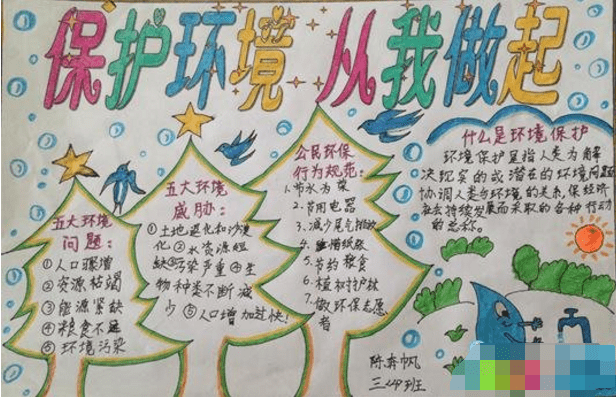 保护环境 从我做起
五大环境
问题:
①人口骤增
②资源枯竭
③能源紧缺
④粮食不足
⑤环境污染
五大环境
威胁:
①土地退化和沙漠
化②水资源短
缺③污染严重④生
物种类不断减
少⑤人口增加过快!
公民环保
行为规范:
1.节水为荣
2.节用电器
3.减少尾气排放
4.珍惜纸张
5.节约粮食
6.植树护林
7.做环保志愿
者
什么是环境保护
环境保护是指人类为解
决现实的或潜在的环境问题
协调人类与环境的关系,保经济
社会持续发展而采取的各种行动
的总称。
陈奔帆
三(4)班